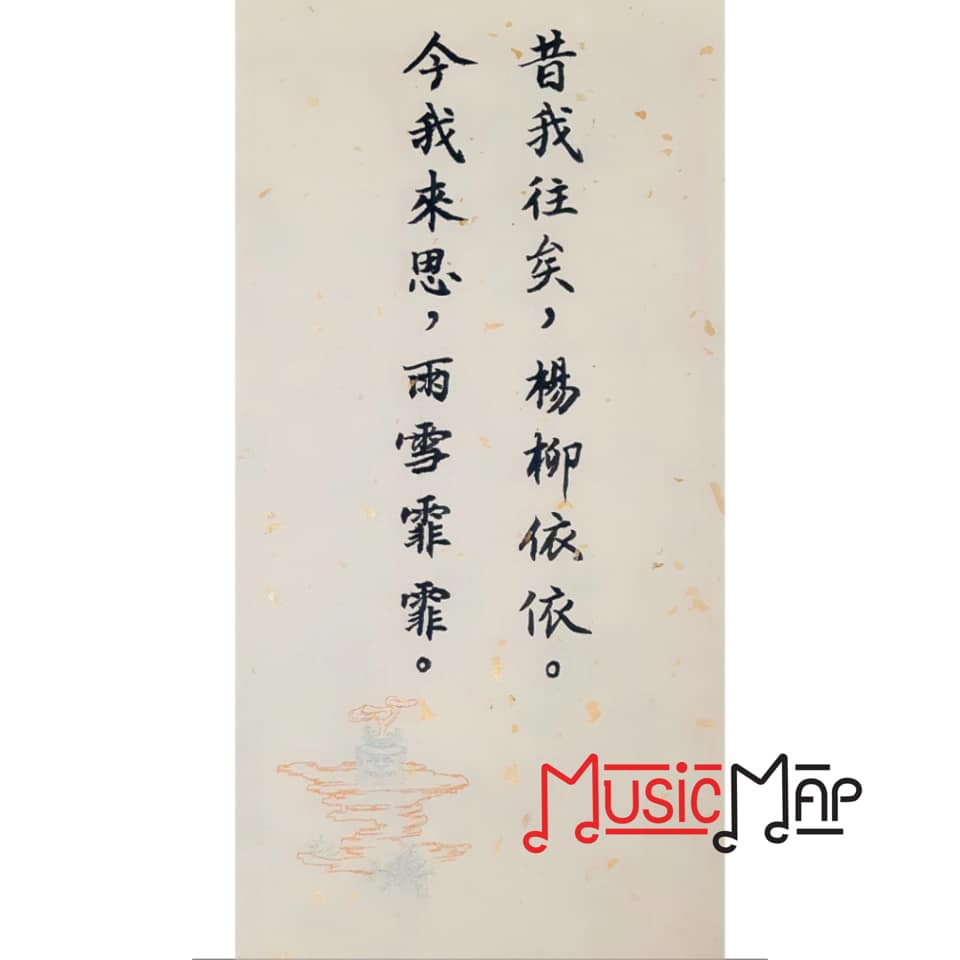 昔我往矣，楊柳依依。
今我來思，雨雪霏霏。
MUSIC MAP